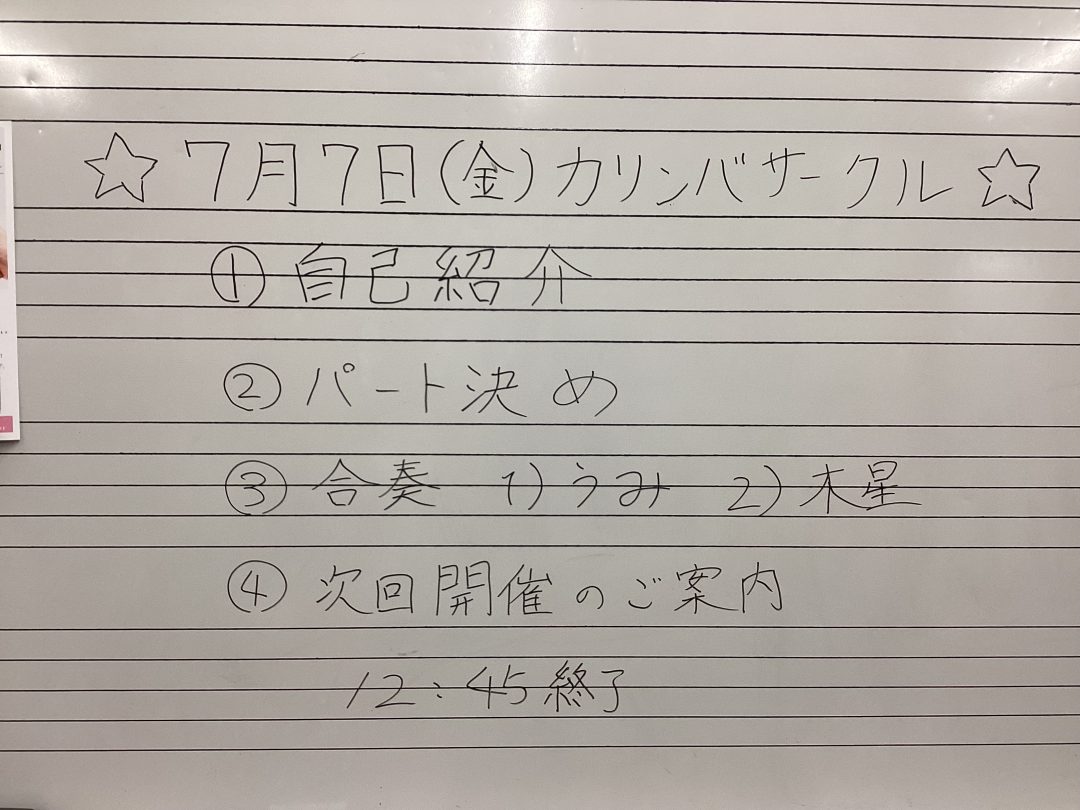 ☆7月7日(金)カリンバサークル☆
① 自己紹介
② パート決め
③ 合奏 1)うみ 2)木星
④ 次回開催のご案内
12:45終了